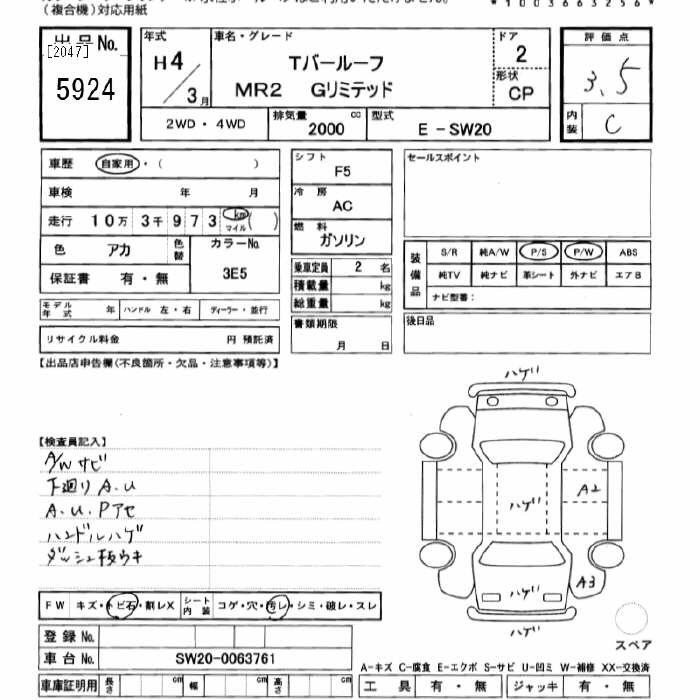 (複合機)対応用紙
*10036632 56*
出品No.
[2047]
5924
年式
H4/3月
車名・グレード
Tバールーフ
MR2 Gリミテッド
ドア
2
形状
CP
評価点
3.5
内装
C
2WD・4WD
排気量
2000 cc
型式
E-SW20
車歴 自家用・( )
車検 年 月
走行 10万3千973 km マイル ( )
色 アカ 色替
カラーNo.
3E5
保証書 有・無
モデル年式 年 ハンドル 左・右 ディーラー・並行
リサイクル料金 円 預託済
シフト
F5
冷房
AC
燃料
ガソリン
乗車定員 2 名
積載量 kg
総重量 kg
書類期限
月 日
セールスポイント
装備品
S/R 純A/W P/S P/W ABS
純TV 純ナビ 革シート 外ナビ エアB
ナビ型番:
後日品
【出品店申告欄(不良箇所・欠品・注意事項等)】
【検査員記入】
A/Wサビ
下廻りA.U
A.U.Pアセ
ハンドルハゲ
ダッシュ板ウキ
ハゲ
ハゲ
A2
A3
ハゲ
ハゲ
スペア
FW キズ・トビ石・割レX シート内装 コゲ・穴・汚レ・シミ・破レ・スレ
登録No.
車台No. SW20-0063761
車庫証明用 長さ cm 幅 cm 高さ cm
A-キズ C-腐食 E-エクボ S-サビ U-凹ミ W-補修 XX-交換済
工具 有・無 ジャッキ 有・無